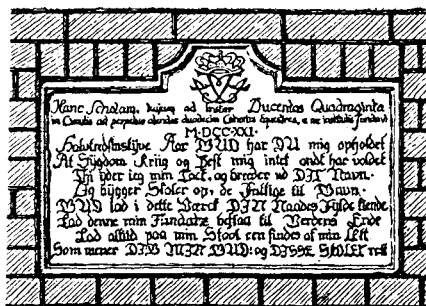 Hanc Scholam, hujus ad instar Ducentas Quadraginta
in Circulis ad perpetuo alendas duodecim Cohortes Equestres, a me institutis fundavi
M·DCC·XXI·
Halvtredsinstijve Aar GUD har DU mig opholdet
At Sygdom Kriig og Pest mig intet ondt har voldet
Thi yder ieg min Tack, og breder ud DIT Navn.
Og bygger Skoler op, de Fattige til Gavn.
GUD lad i dette Værck DIN Naades Fylde kiende
Lad denne min Fundatz bestaa til Verdens Ende
Lad altid paa min Stool een findes af min Ætt
Som mener DIG MIN GUD: og DISSE SKOLER rett